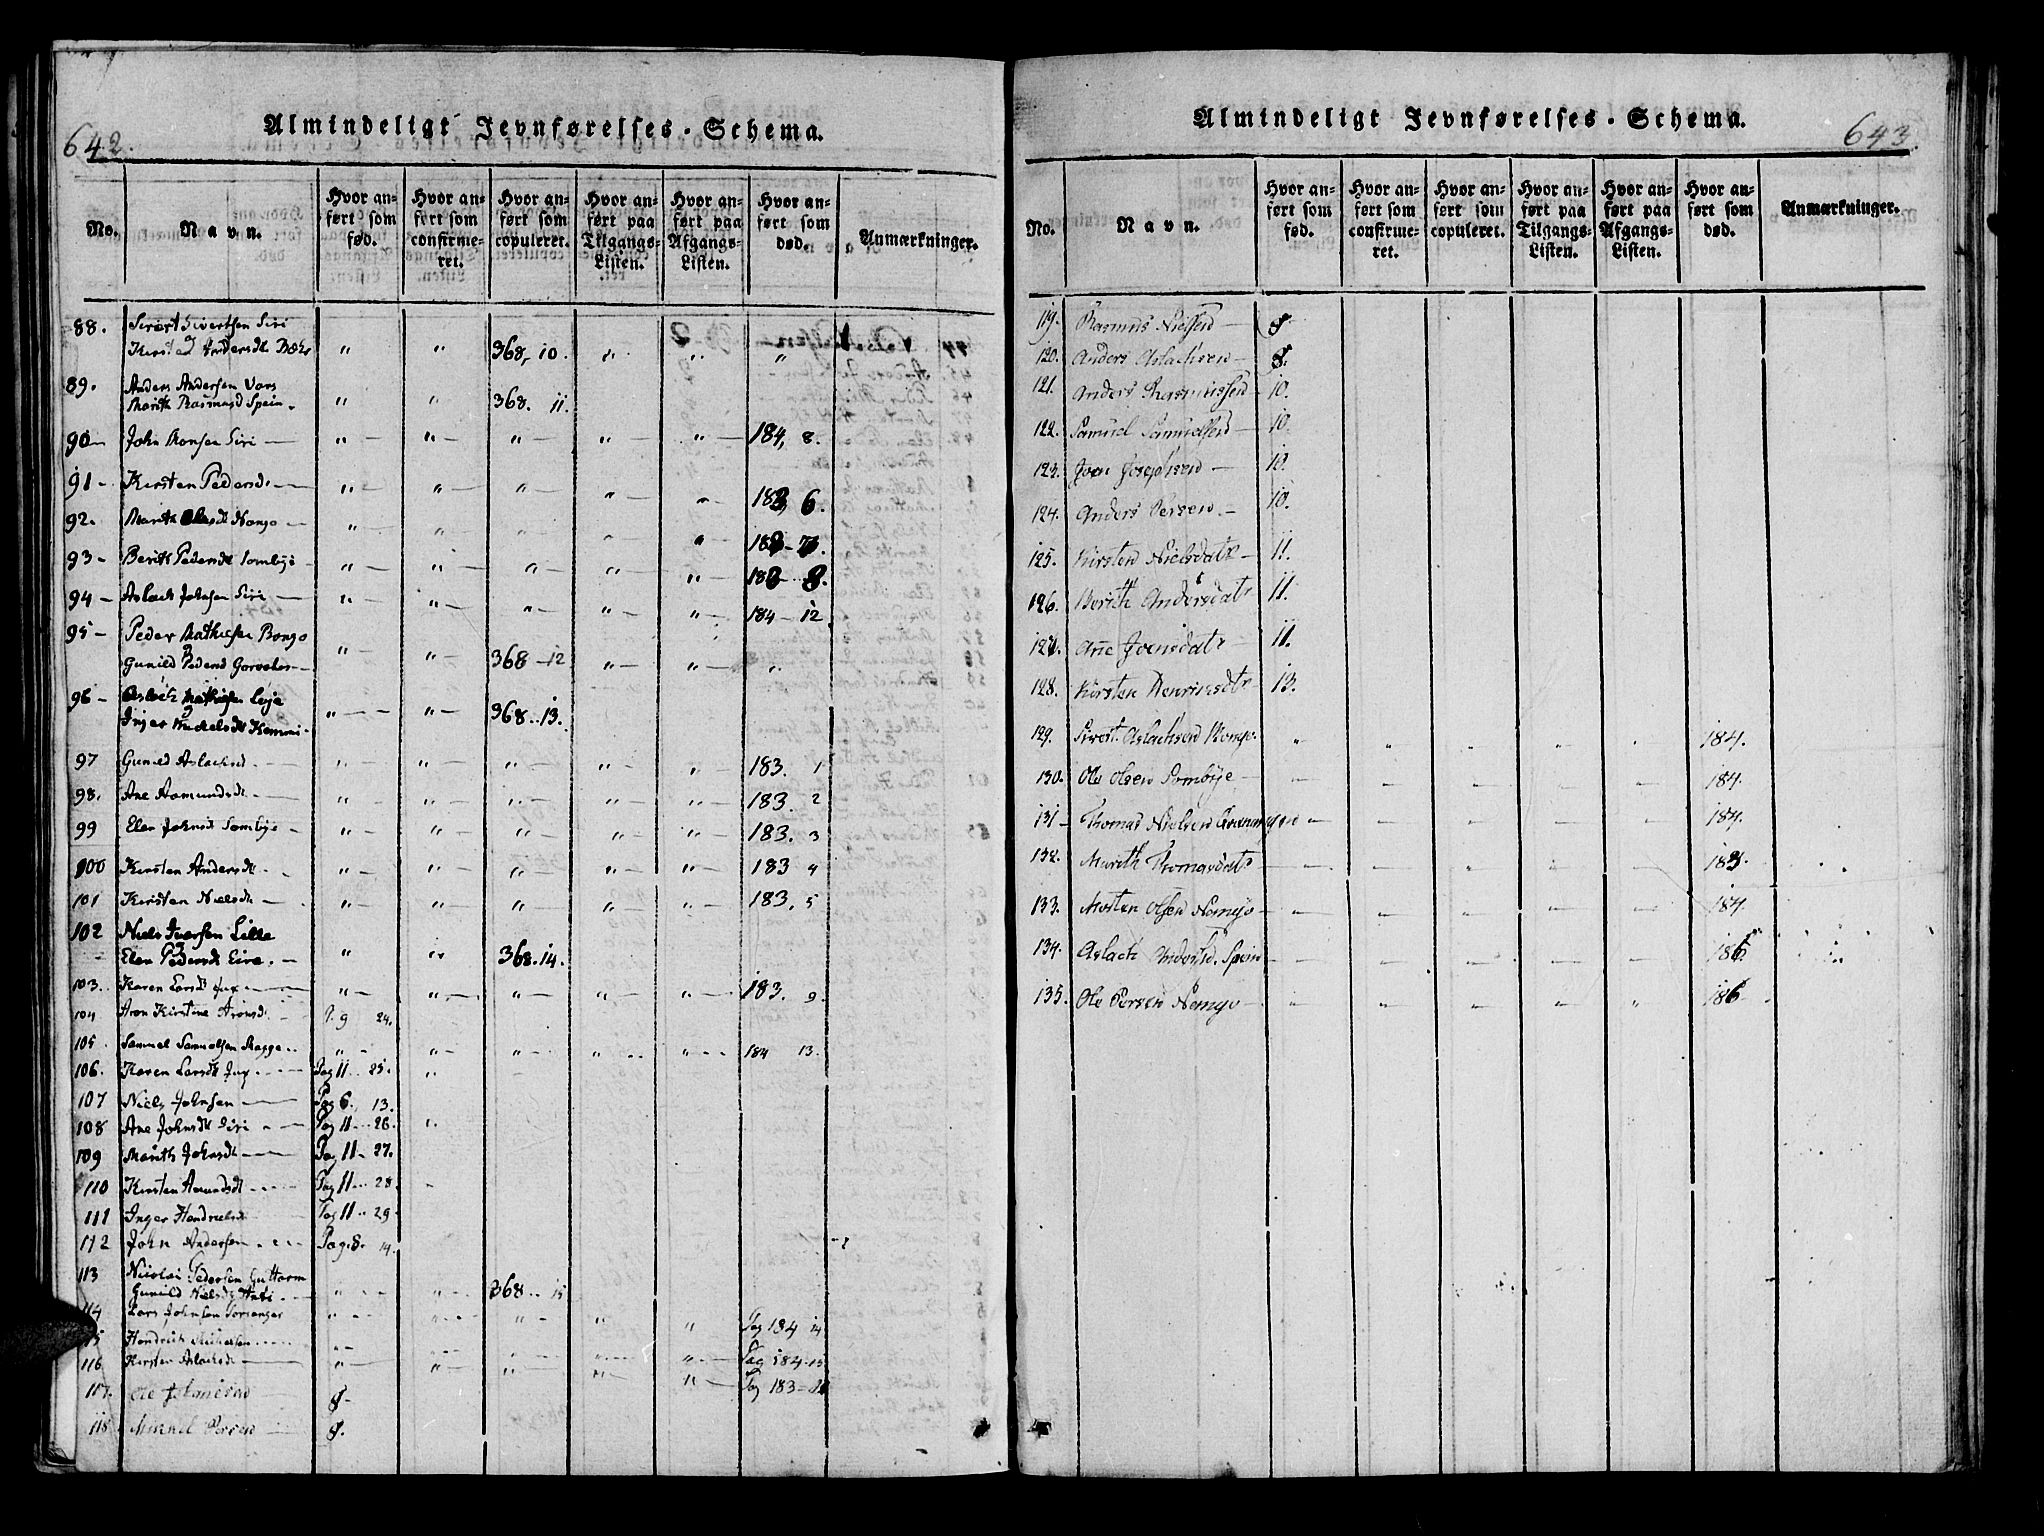 642.
Almindeligt Jevnførelses-Schema.
No. Navn. Hvor anført som fød. Hvor anført som confirmeret. Hvor anført som copuleret. Hvor anført paa Tilgangs-Listen. Hvor anført paa Afgangs-Listen. Hvor anført som død. Anmærkninger.
88. Sivert Sivertsen Siri
Kirsten Andersdt " " 368, 10. " " "
89. Anders Andersen Vars
Marith Rasmusd Spein. " " 368. 11.
90 John Monsen Siri " " " " " 184, 8.
91 Kirsten Pedersdt " " " " " 183, 6.
92. Marith Olesdt " " " " "
93 Berith Pedersdt Somby " " " " " 8.
94 Aslach Johnsen Siri " " " " " 184 12
95 Peder Mathiesen Bongo
Gunild Pedersd " " 368 12 " " "
96 Aslach Mathisen
Inger Michelsdt Kemmi " " 368..13.
97 Gunild Aslachsd. " " " " " 183. 1
98. Ane Aamundsdt " " " " " 183. 2
99 Elen Johnsdt Sombye " " " " " 183. 3
100 Kirsten Andersdt. " " " " " 183 4
101 Kirsten Nielsdt " " " " " 183. 5
102 Niels Iversen Lille
Elen Pedersdt Eira. " " 368.14.
103. Karen Larsdt Jux " " " " " 183. 9.
104 Aron Kirstine Aronsd. P. 9 24.
105. Samuel Samuelsen Ragge.. " " " " " 184 13.
106. Karen Larsdt Jux Pag 11.. 25.
107 Niels Johnsen Pag 6. 13.
108 Ane Johnsdt Siri Pag 11..26.
109 Marith Johnsdt Pag 11- 27.
110 Kirsten Amundsdt Pag 11.. 28.
111 Inger Hendricksd Pag 11.. 29
112 John Andersen Pag. 8. 14.
113 Nicolai Pedersen Guttorm
Gunild Nielsdt Anti. " " 368.. 15
114 Lars Johnsen Porsanger " " " " " Pag 184 14
115 Hendrick Michelsen " " " " " Pag 184-15
116 Kirsten Aslachsdt " " " " " Pag 183-
117. Ole Johannesen 8.
118 Mikkel Persen 8.
643.
Almindeligt Jevnførelses-Schema.
No. Navn. Hvor anført som fød. Hvor anført som confirmeret. Hvor anført som copuleret. Hvor anført paa Tilgangs-Listen. Hvor anført paa Afgangs-Listen. Hvor anført som død. Anmærkninger.
119. Rasmus Nielsen 8.
120. Anders Aslachsen 8.
121. Anders Rasmussen 10.
122. Samuel Samuelsen 10.
123. Joen Josephsen 10.
124. Anders Persen 10.
125. Kirsten Nielsdatr 11.
126. Berith Andersdatr 11.
127. Ane Joensdatr 11.
128. Kirsten Henriksdtr 13.
129. Sivert Aslachsen Bongo. " " " " " 184.
130. Ole Olsen Sombye 184.
131 Thomas Nielsen 184.
132. Marith Thomasdatr 183.
133. Morten Olsen Nomgo 184.
134. Aslach Anders. Spein 186
135. Ole Persen Nomgo " " " " " 186